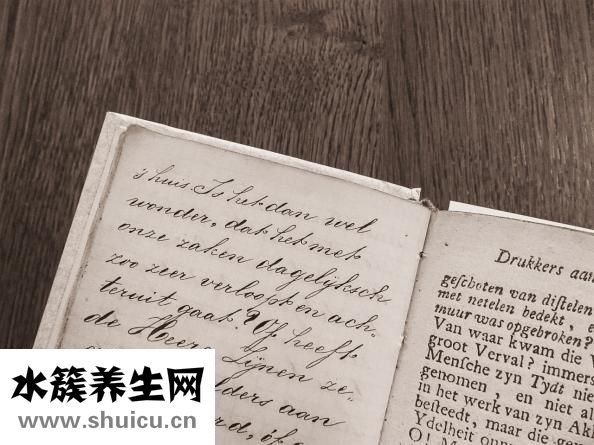 's huis. Is het dan wel
wonder, dat het met
onze zaken dagelijksch
zoo zeer verloopt en ach-
teruit gaat? Of heeft
de Heere Zijnen ze-
ders aan
Drukkers aan
geschoten van distelen
met netelen bedekt, e
muur was opgebroken?
Van waar kwam die V
groot Verval? immers
Mensche zyn Tydt nie
genomen, en niet al
in het werk van zyn Ak
besteedt, maar die gen
Ydelheit
水簇养生网
www.shuicu.cn